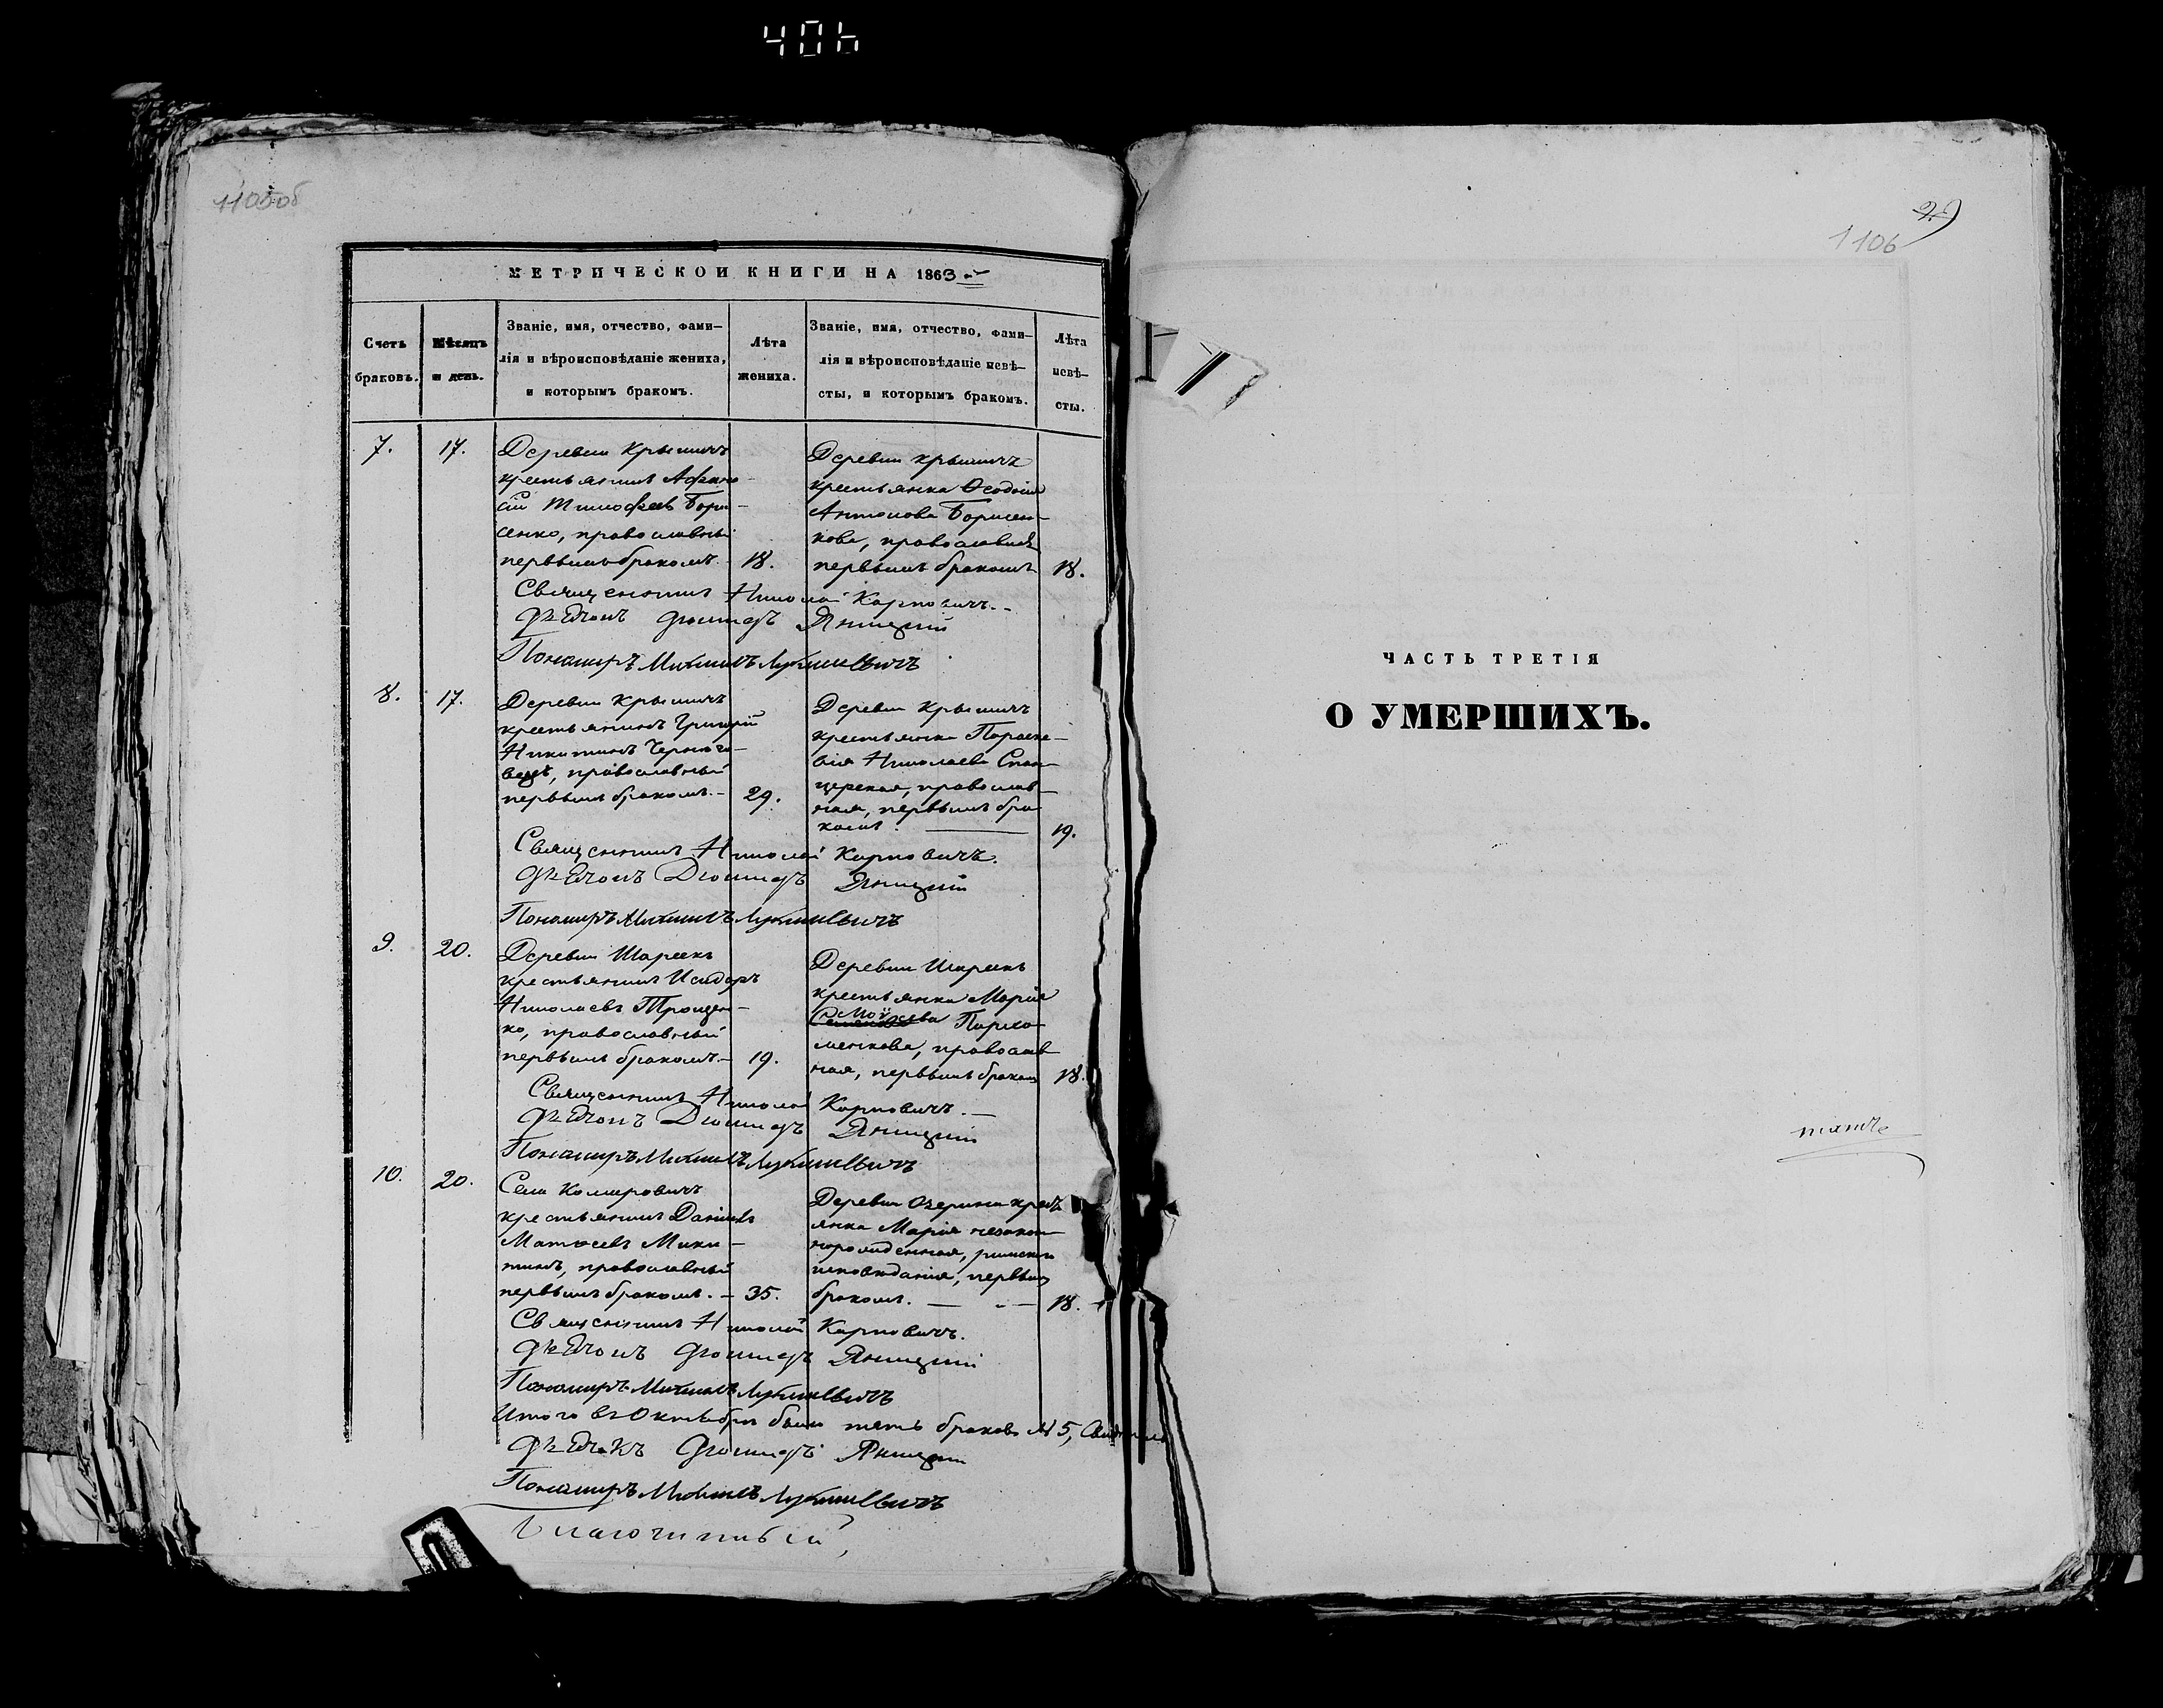 406
1105об
МЕТРИЧЕСКОЙ КНИГИ НА 1863
Счетъ браковъ.
Мѣсяцъ и день.
Званіе, имя, отчество, фами-
лія и вѣроисповѣданіе жениха,
и которымъ бракомъ.
Лѣта жениха.
Званіе, имя, отчество, фами-
лія и вѣроисповѣданіе невѣ-
сты, и которымъ бракомъ.
Лѣта невѣ-
сты.
7.
17.
Деревни Крышичъ
крестьянинъ Афана-
сій Тимофеевъ Бори-
сенко, православный
первымъ бракомъ.
18.
Деревни Крышичъ
крестьянка Ѳеодосія
Антонова Борисен-
кова, православная
первымъ бракомъ
18.
Священникъ Николай Карповичъ.
Діаконъ Діомидъ Яницкій
Пономарь Михаилъ
8.
17.
Деревни Крышичъ
крестьянинъ Григорій
Никитинъ Черного-
вецъ, православный
первымъ бракомъ.
29.
Деревни Крышичъ
крестьянка Параске-
вія Николаева
православ-
ная, первымъ бра-
комъ.
19.
Священникъ Николай Карповичъ.
Діаконъ Діомидъ Яницкій
Пономарь Михаилъ
9.
20.
Деревни Шареекъ
крестьянинъ Исидоръ
Николаевъ Трощен-
ко, православный
первымъ бракомъ.
19.
Деревни Шареекъ
крестьянка Марія
Пархо-
менкова, православ-
ная, первымъ бракомъ
18.
Священникъ Николай Карповичъ.
Діаконъ Діомидъ Яницкій
Пономарь Михаилъ
10.
20.
Села Комаровичъ
крестьянинъ Даніилъ
Матѳеевъ Мики-
тинъ, православный
первымъ бракомъ.
35.
Деревни Озерина крестъ
янка Марія незакон-
норожденная, римскаго
исповѣданія, первымъ
бракомъ.
18.
Священникъ Николай Карповичъ.
Діаконъ Діомидъ Яницкій
Пономарь Михаилъ
Итого въ Октябрѣ было пять браковъ № 5,
Діаконъ Діомидъ Яницкій
Пономарь Михаилъ
Благочинный,
29
1106
ЧАСТЬ ТРЕТІЯ
О УМЕРШИХЪ.